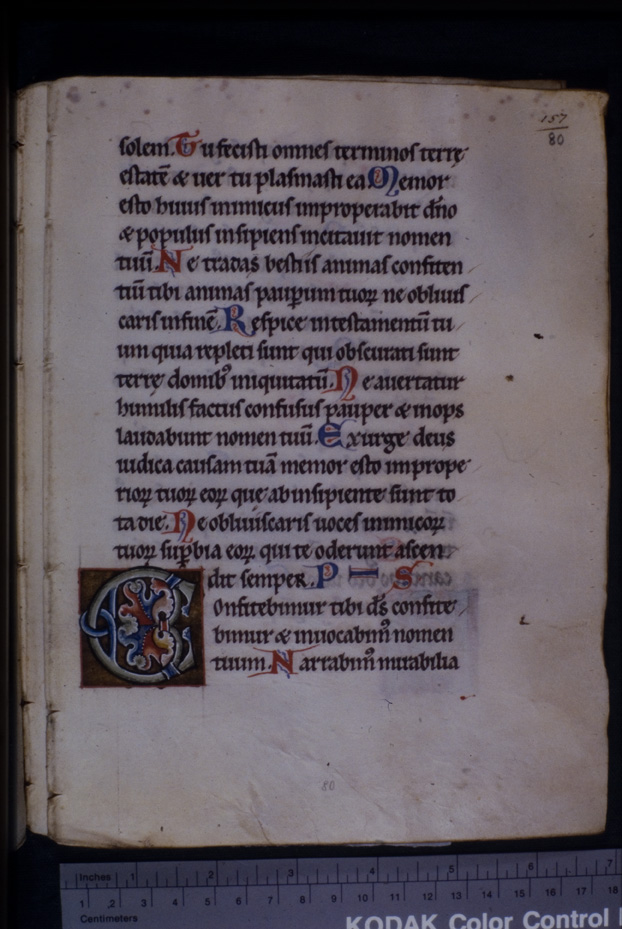 157
80
solem. Tu fecisti omnes terminos terrę
estatē & uer tu plasmasti ea. Memor
esto huius inimicus improperabit dño
& populus insipiens incitauit nomen
tuū. Ne tradas bestiis animas confiten
tiū tibi animas paup̄um tuoꝝ ne obliuis
caris infinē. Respice intestamentū tu
um quia repleti sunt qui obscurati sunt
terrę domibꝰ iniquitatū. Ne auertatur
humilis factus confusus pauper & inops
laudabunt nomen tuū. Exurge deus
iudica causam tuā memor esto imprope
rioꝝ tuoꝝ eoꝝ que ab insipiente sunt to
ta die. Ne obliuiscaris uoces inimicoꝝ
tuoꝝ sup̄bia eoꝝ qui te oderunt ascen
dit semper. P I S
Confitebimur tibi d̄s confite
bimur & inuocabimꝰ nomen
tuum. Narrabimꝰ mirabilia
80
Inches 1 2 3 4 5 6 7
1 2 3 4 5 6 7 8 9 10 11 12 13 14 15 16 17 18
Centimeters
KODAK Color Control